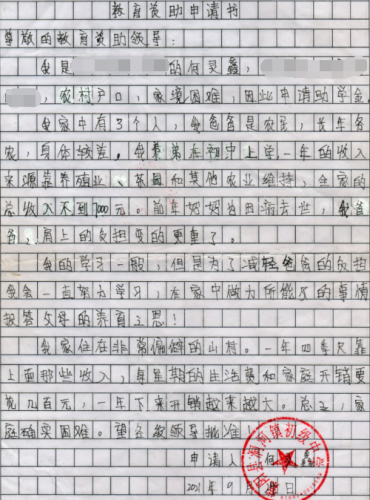 教育资助申请书
尊敬的教育资助领导：
我是 的何灵鑫，
，农村户口，家境困难，因此申请助学金。
我家中有3个人，我爸爸是农民，长年务
农，身体较差。我 弟在初中上学，一年的收入
来源靠养殖业、菜园和其他农业维持，全家的
总收入不到7000元。前年妈妈因 病去世，我爸
爸，肩上的负担变的更重了。
我的学习一般，但是为了减轻爸爸的负担
我会一直努力学习，在家中做力所能及的事情
报答父母的养育之恩！
我家住在非常偏僻的山村。一年四季只靠
上面那些收入，每星期的生活费和家庭开销要
花几百元，一年下来开销越来越大。总之，家
庭确实困难。望各级领导批准！
申请人 何 鑫
2021年9月 日
河镇初级中